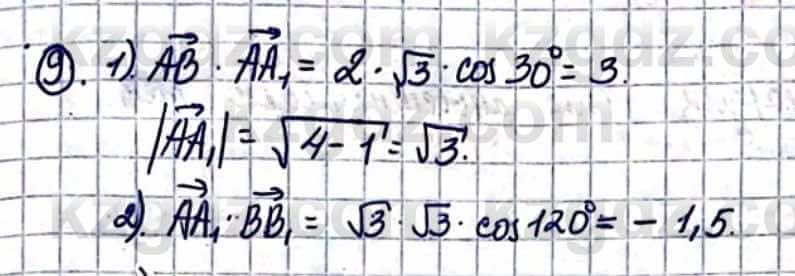 9. 1). AB⃗ · AA₁⃗ = 2 · √3 · cos 30° = 3.
|AA₁⃗| = √(4 - 1) = √3.
2). AA₁⃗ · BB₁⃗ = √3 · √3 · cos 120° = - 1,5.